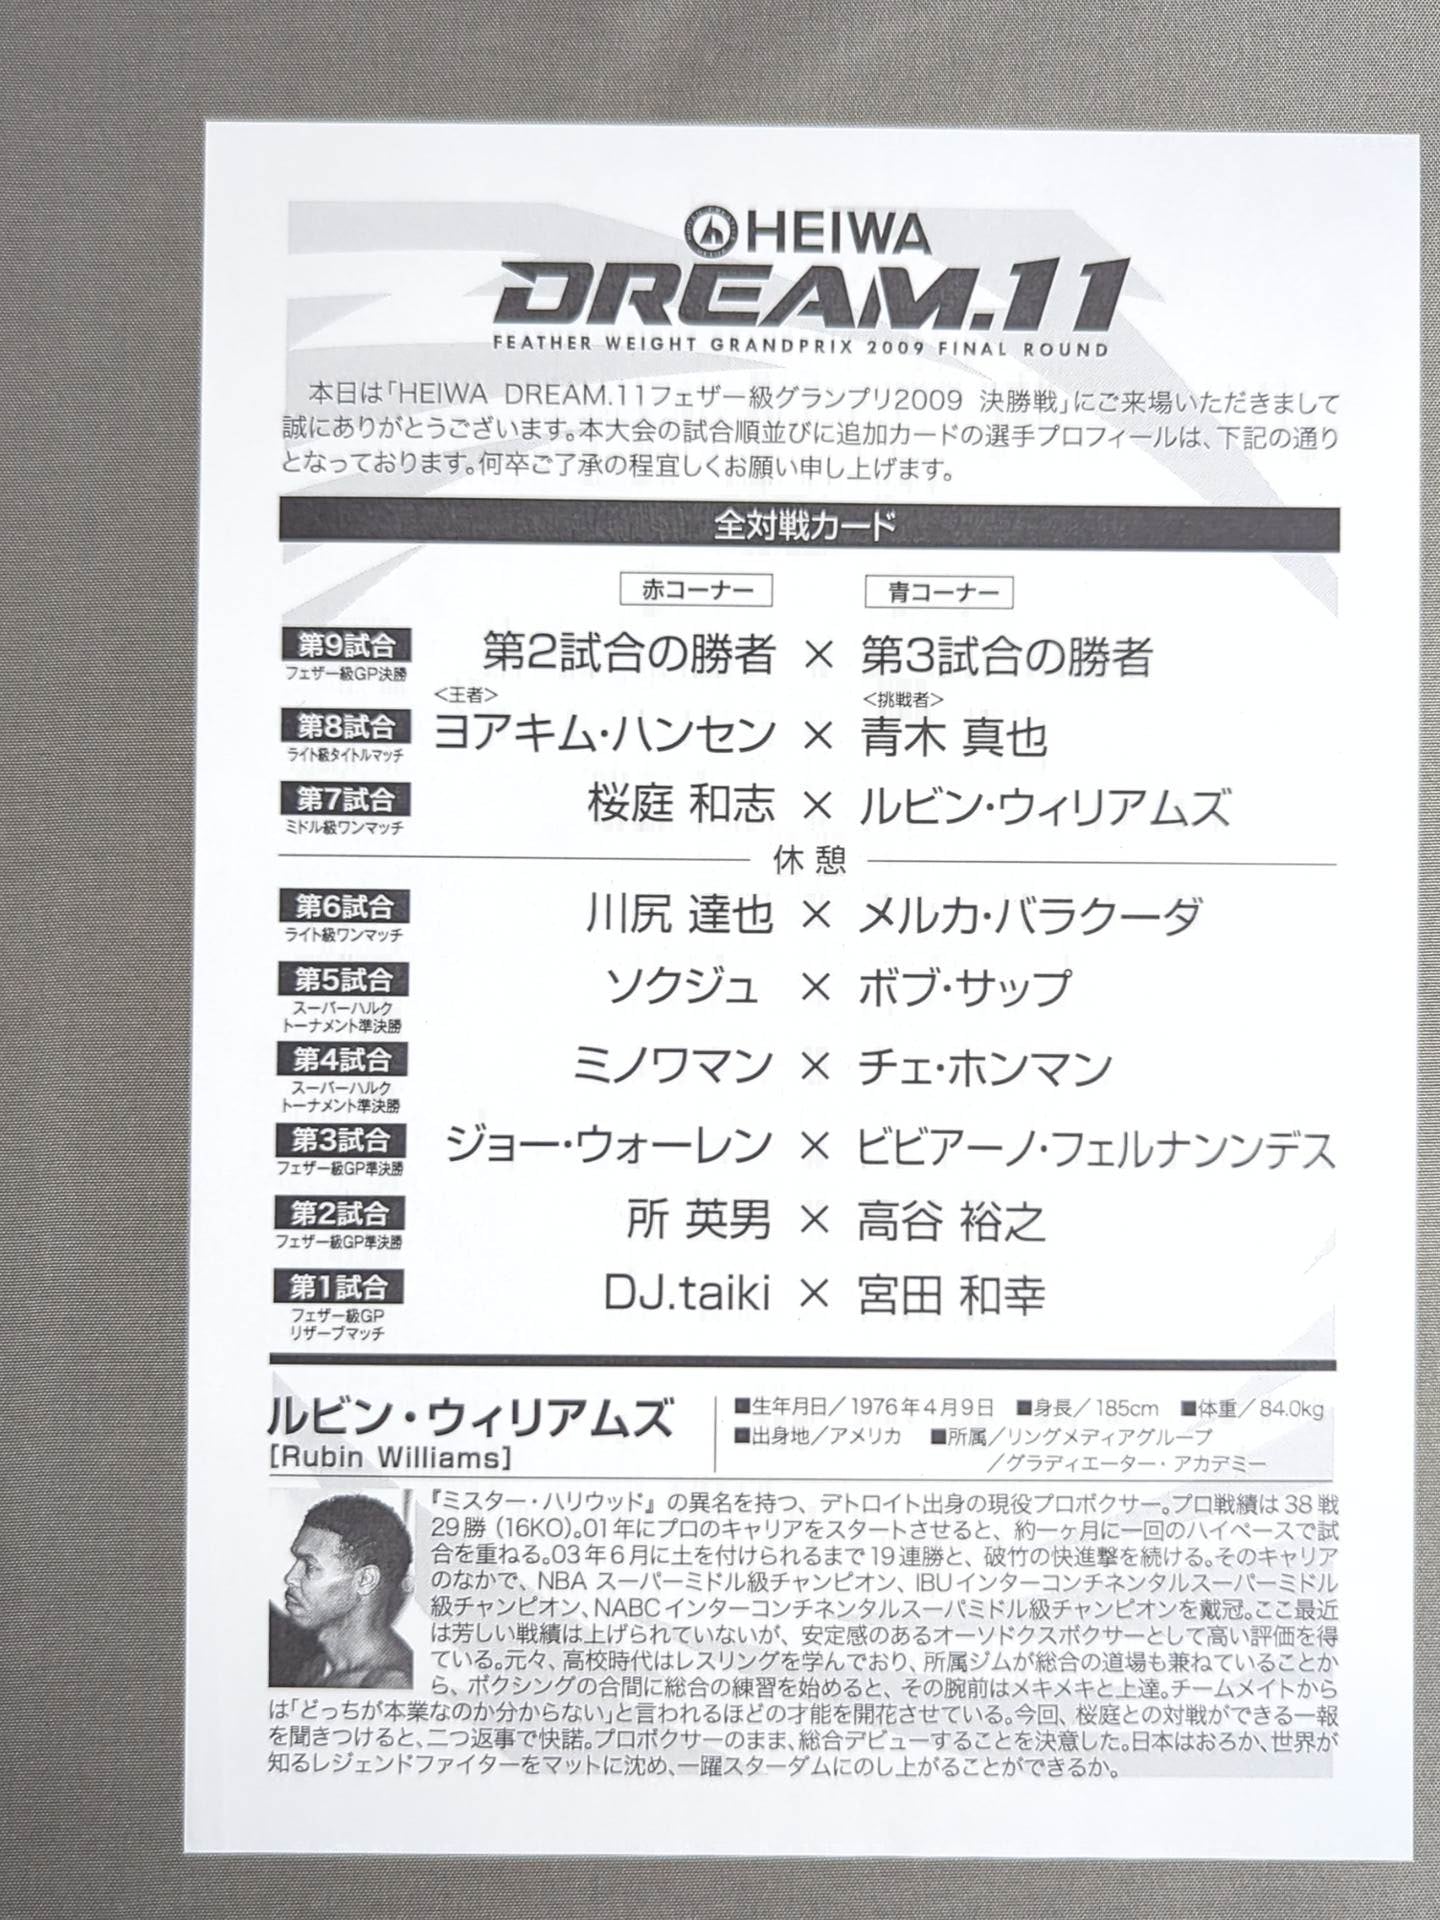 HEIWA
DREAM.11
FEATHER WEIGHT GRANDPRIX 2009 FINAL ROUND
本日は「HEIWA DREAM.11フェザー級グランプリ2009 決勝戦」にご来場いただきまして
誠にありがとうございます。本大会の試合順並びに追加カードの選手プロフィールは、下記の通り
となっております。何卒ご了承の程宜しくお願い申し上げます。
全対戦カード
赤コーナー 青コーナー
第9試合 第2試合の勝者 × 第3試合の勝者
フェザー級GP決勝
<王者> <挑戦者>
第8試合 ヨアキム・ハンセン × 青木 真也
ライト級タイトルマッチ
第7試合 桜庭 和志 × ルビン・ウィリアムズ
ミドル級ワンマッチ
休憩
第6試合 川尻 達也 × メルカ・バラクーダ
ライト級ワンマッチ
第5試合 ソクジュ × ボブ・サップ
スーパーハルク
トーナメント準決勝
第4試合 ミノワマン × チェ・ホンマン
スーパーハルク
トーナメント準決勝
第3試合 ジョー・ウォーレン × ビビアーノ・フェルナンンデス
フェザー級GP準決勝
第2試合 所 英男 × 高谷 裕之
フェザー級GP準決勝
第1試合 DJ.taiki × 宮田 和幸
フェザー級GP
リザーブマッチ
ルビン・ウィリアムズ
[Rubin Williams]
■生年月日／1976年4月9日 ■身長／185cm ■体重／84.0kg
■出身地／アメリカ ■所属／リングメディアグループ
／グラディエーター・アカデミー
『ミスター・ハリウッド』の異名を持つ、デトロイト出身の現役プロボクサー。プロ戦績は38戦
29勝（16KO）。01年にプロのキャリアをスタートさせると、約一ヶ月に一回のハイペースで試
合を重ねる。03年6月に土を付けられるまで19連勝と、破竹の快進撃を続ける。そのキャリア
のなかで、NBA スーパーミドル級チャンピオン、IBUインターコンチネンタルスーパーミドル
級チャンピオン、NABCインターコンチネンタルスーパミドル級チャンピオンを戴冠。ここ最近
は芳しい戦績は上げられていないが、安定感のあるオーソドクスボクサーとして高い評価を得
ている。元々、高校時代はレスリングを学んでおり、所属ジムが総合の道場も兼ねていることか
ら、ボクシングの合間に総合の練習を始めると、その腕前はメキメキと上達。チームメイトから
は「どっちが本業なのか分からない」と言われるほどの才能を開花させている。今回、桜庭との対戦ができる一報
を聞きつけると、二つ返事で快諾。プロボクサーのまま、総合デビューすることを決意した。日本はおろか、世界が
知るレジェンドファイターをマットに沈め、一躍スターダムにのし上がることができるか。